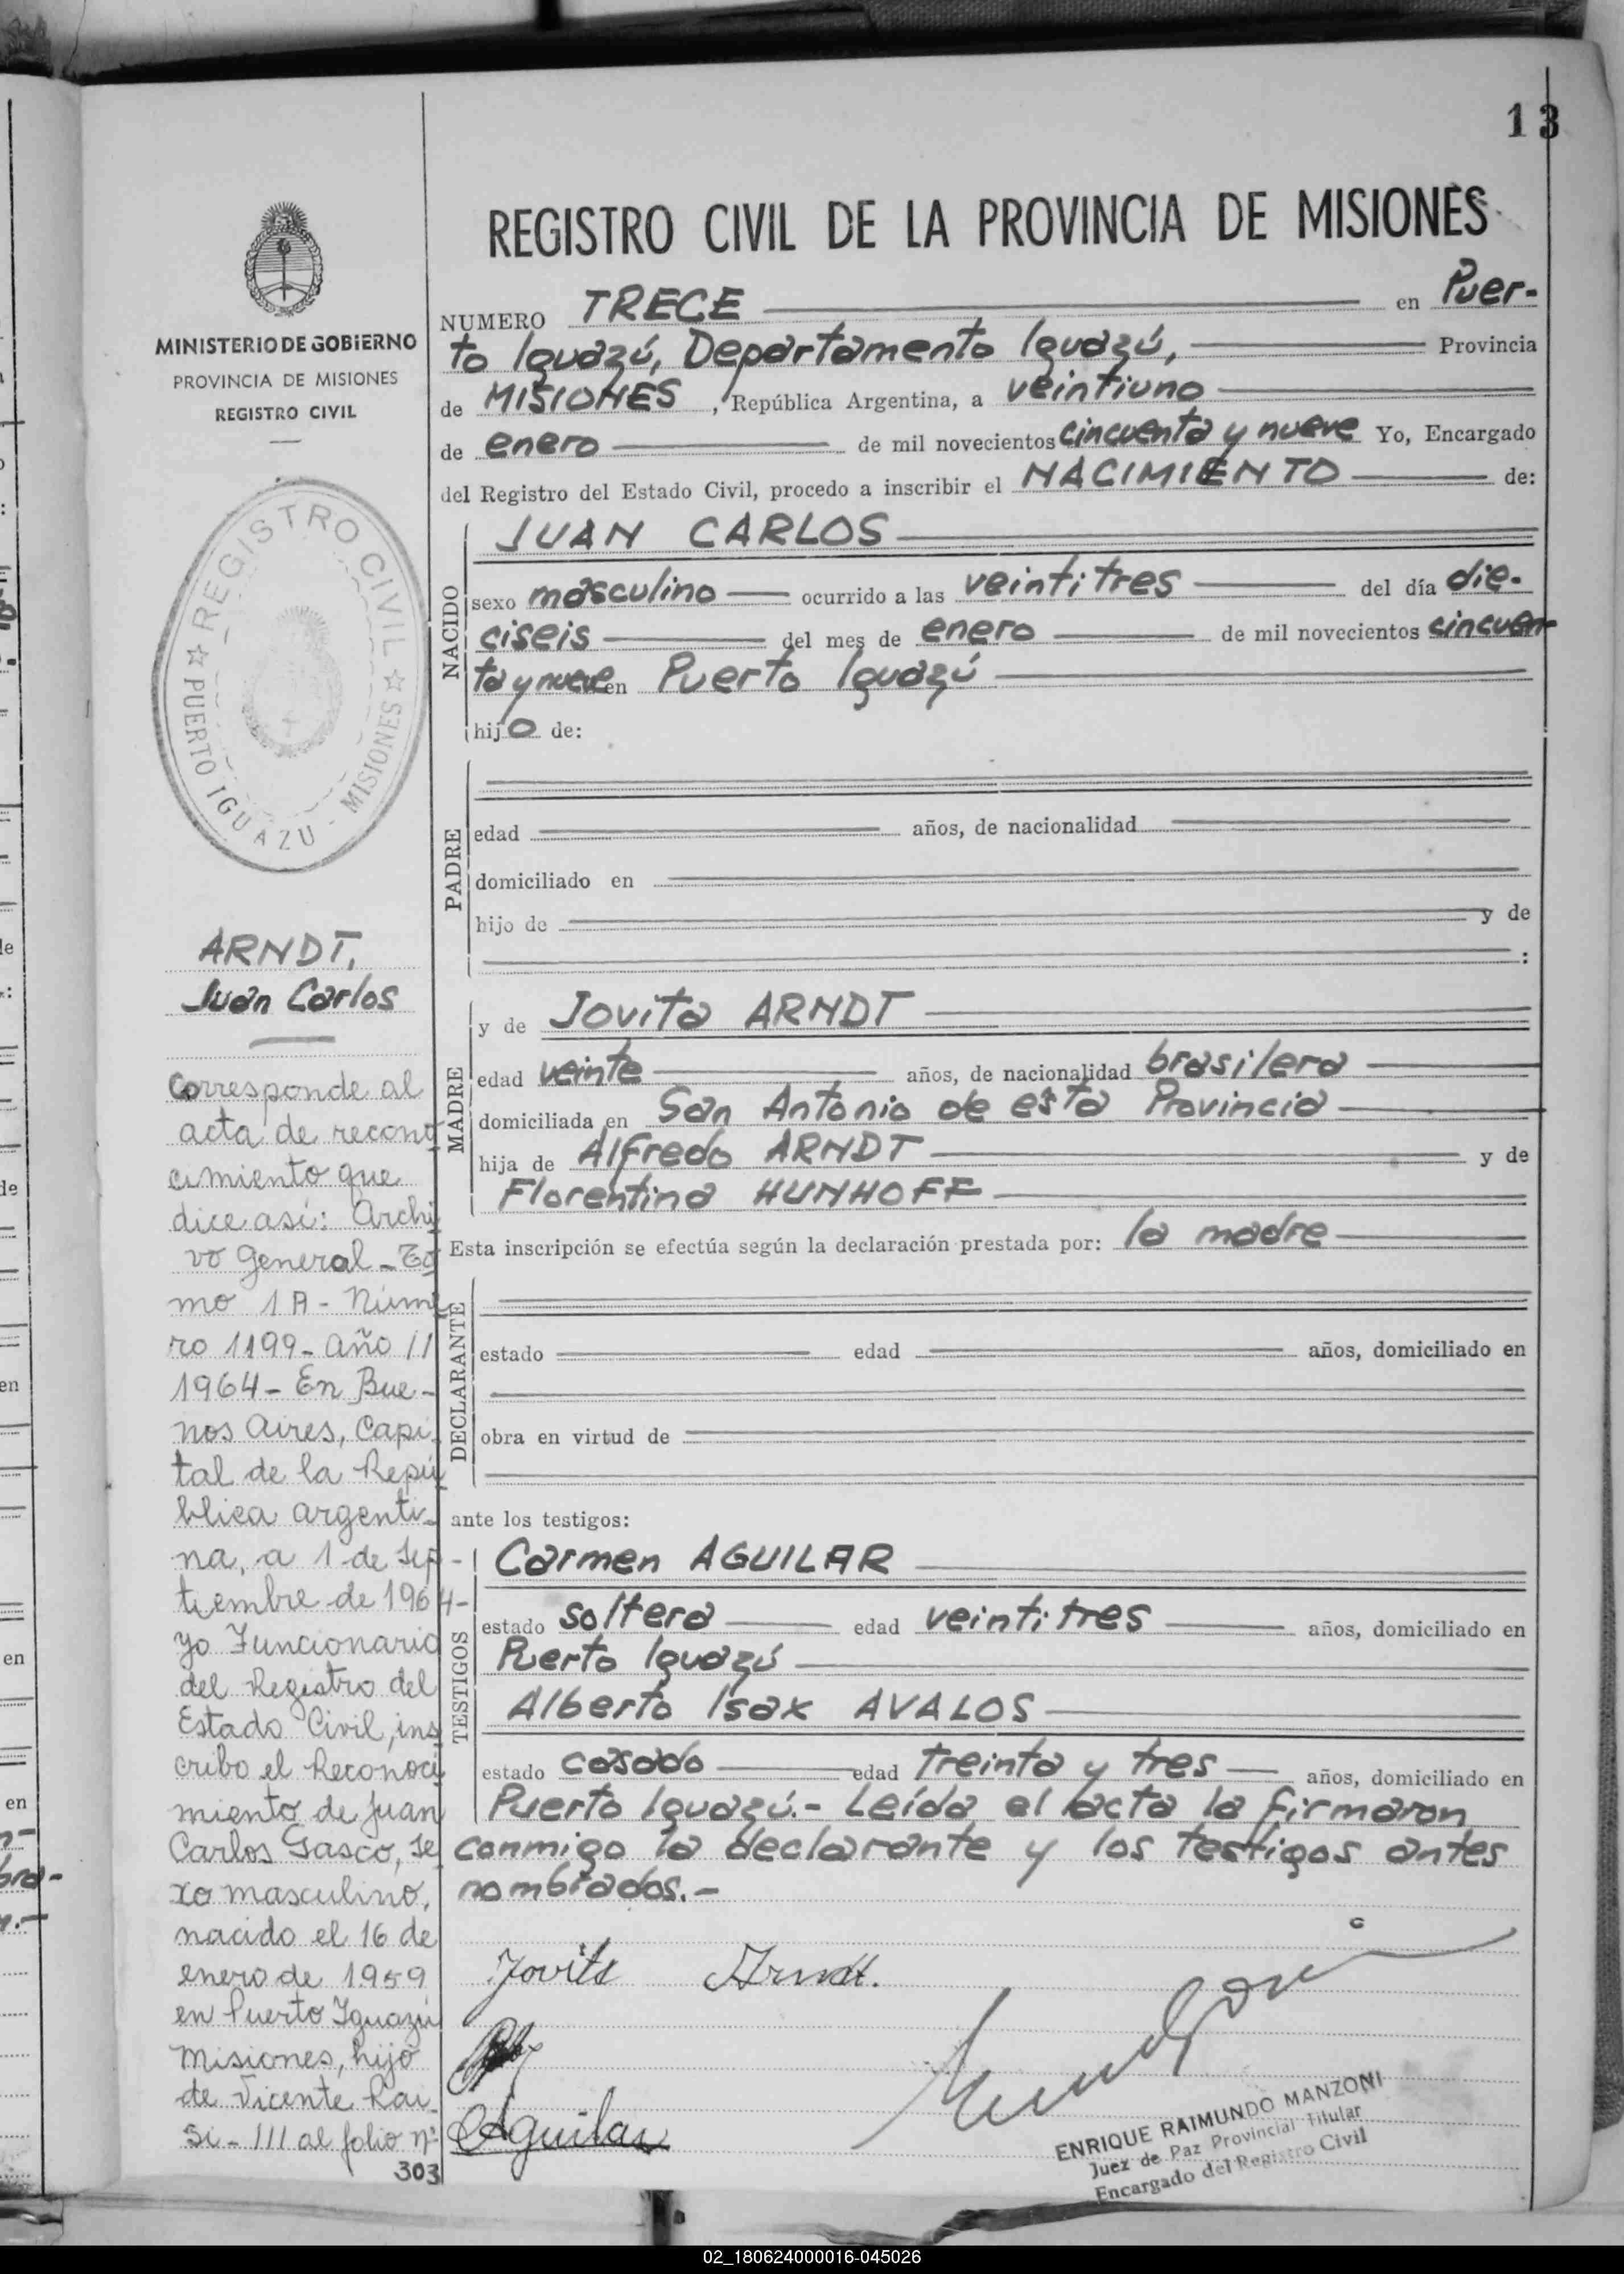 13
REGISTRO CIVIL DE LA PROVINCIA DE MISIONES
MINISTERIO DE GOBIERNO
PROVINCIA DE MISIONES
REGISTRO CIVIL
REGISTRO CIVIL
PUERTO IGUAZU - MISIONES
ARNDT,
Juan Carlos
Corresponde al
acta de recono
cimiento que
dice así: Archi
vo General - To
mo 1A - Núme
ro 1199 - Año //
1964 - En Bue-
nos Aires, Capi
tal de la Repú
blica Argenti-
na, a 1 de Sep-
tiembre de 1964-
yo Funcionario
del Registro del
Estado Civil, ins
cribo el Reconoci
miento de Juan
Carlos Gasco, se
xo masculino,
nacido el 16 de
enero de 1959
en Puerto Iguazú
Misiones, hijo
de Vicente Rai-
si - /// al folio nº
303
NUMERO TRECE en Puer-
to Iguazú, Departamento Iguazú, Provincia
de MISIONES, República Argentina, a veintiuno
de enero de mil novecientos cincuenta y nueve Yo, Encargado
del Registro del Estado Civil, procedo a inscribir el NACIMIENTO de:
NACIDO
JUAN CARLOS
sexo masculino ocurrido a las veintitres del día die-
ciseis del mes de enero de mil novecientos cincuen-
ta y nueve en Puerto Iguazú
hijo de:
PADRE
edad años, de nacionalidad
domiciliado en
hijo de y de
:
MADRE
y de Jovita ARNDT
edad veinte años, de nacionalidad brasilera
domiciliada en San Antonio de esta Provincia
hija de Alfredo ARNDT y de
Florentina HUNHOFF
Esta inscripción se efectúa según la declaración prestada por: la madre
DECLARANTE
estado edad años, domiciliado en
obra en virtud de
ante los testigos:
TESTIGOS
Carmen AGUILAR
estado soltera edad veintitres años, domiciliado en
Puerto Iguazú
Alberto Isax AVALOS
estado casado edad treinta y tres años, domiciliado en
Puerto Iguazú.- Leída el acta la firmaron
conmigo la declarante y los testigos antes
nombrados.-
Jovita Arndt.
Aguilar
ENRIQUE RAIMUNDO MANZONI
Juez de Paz Provincial Titular
Encargado del Registro Civil
02_180624000016-045026